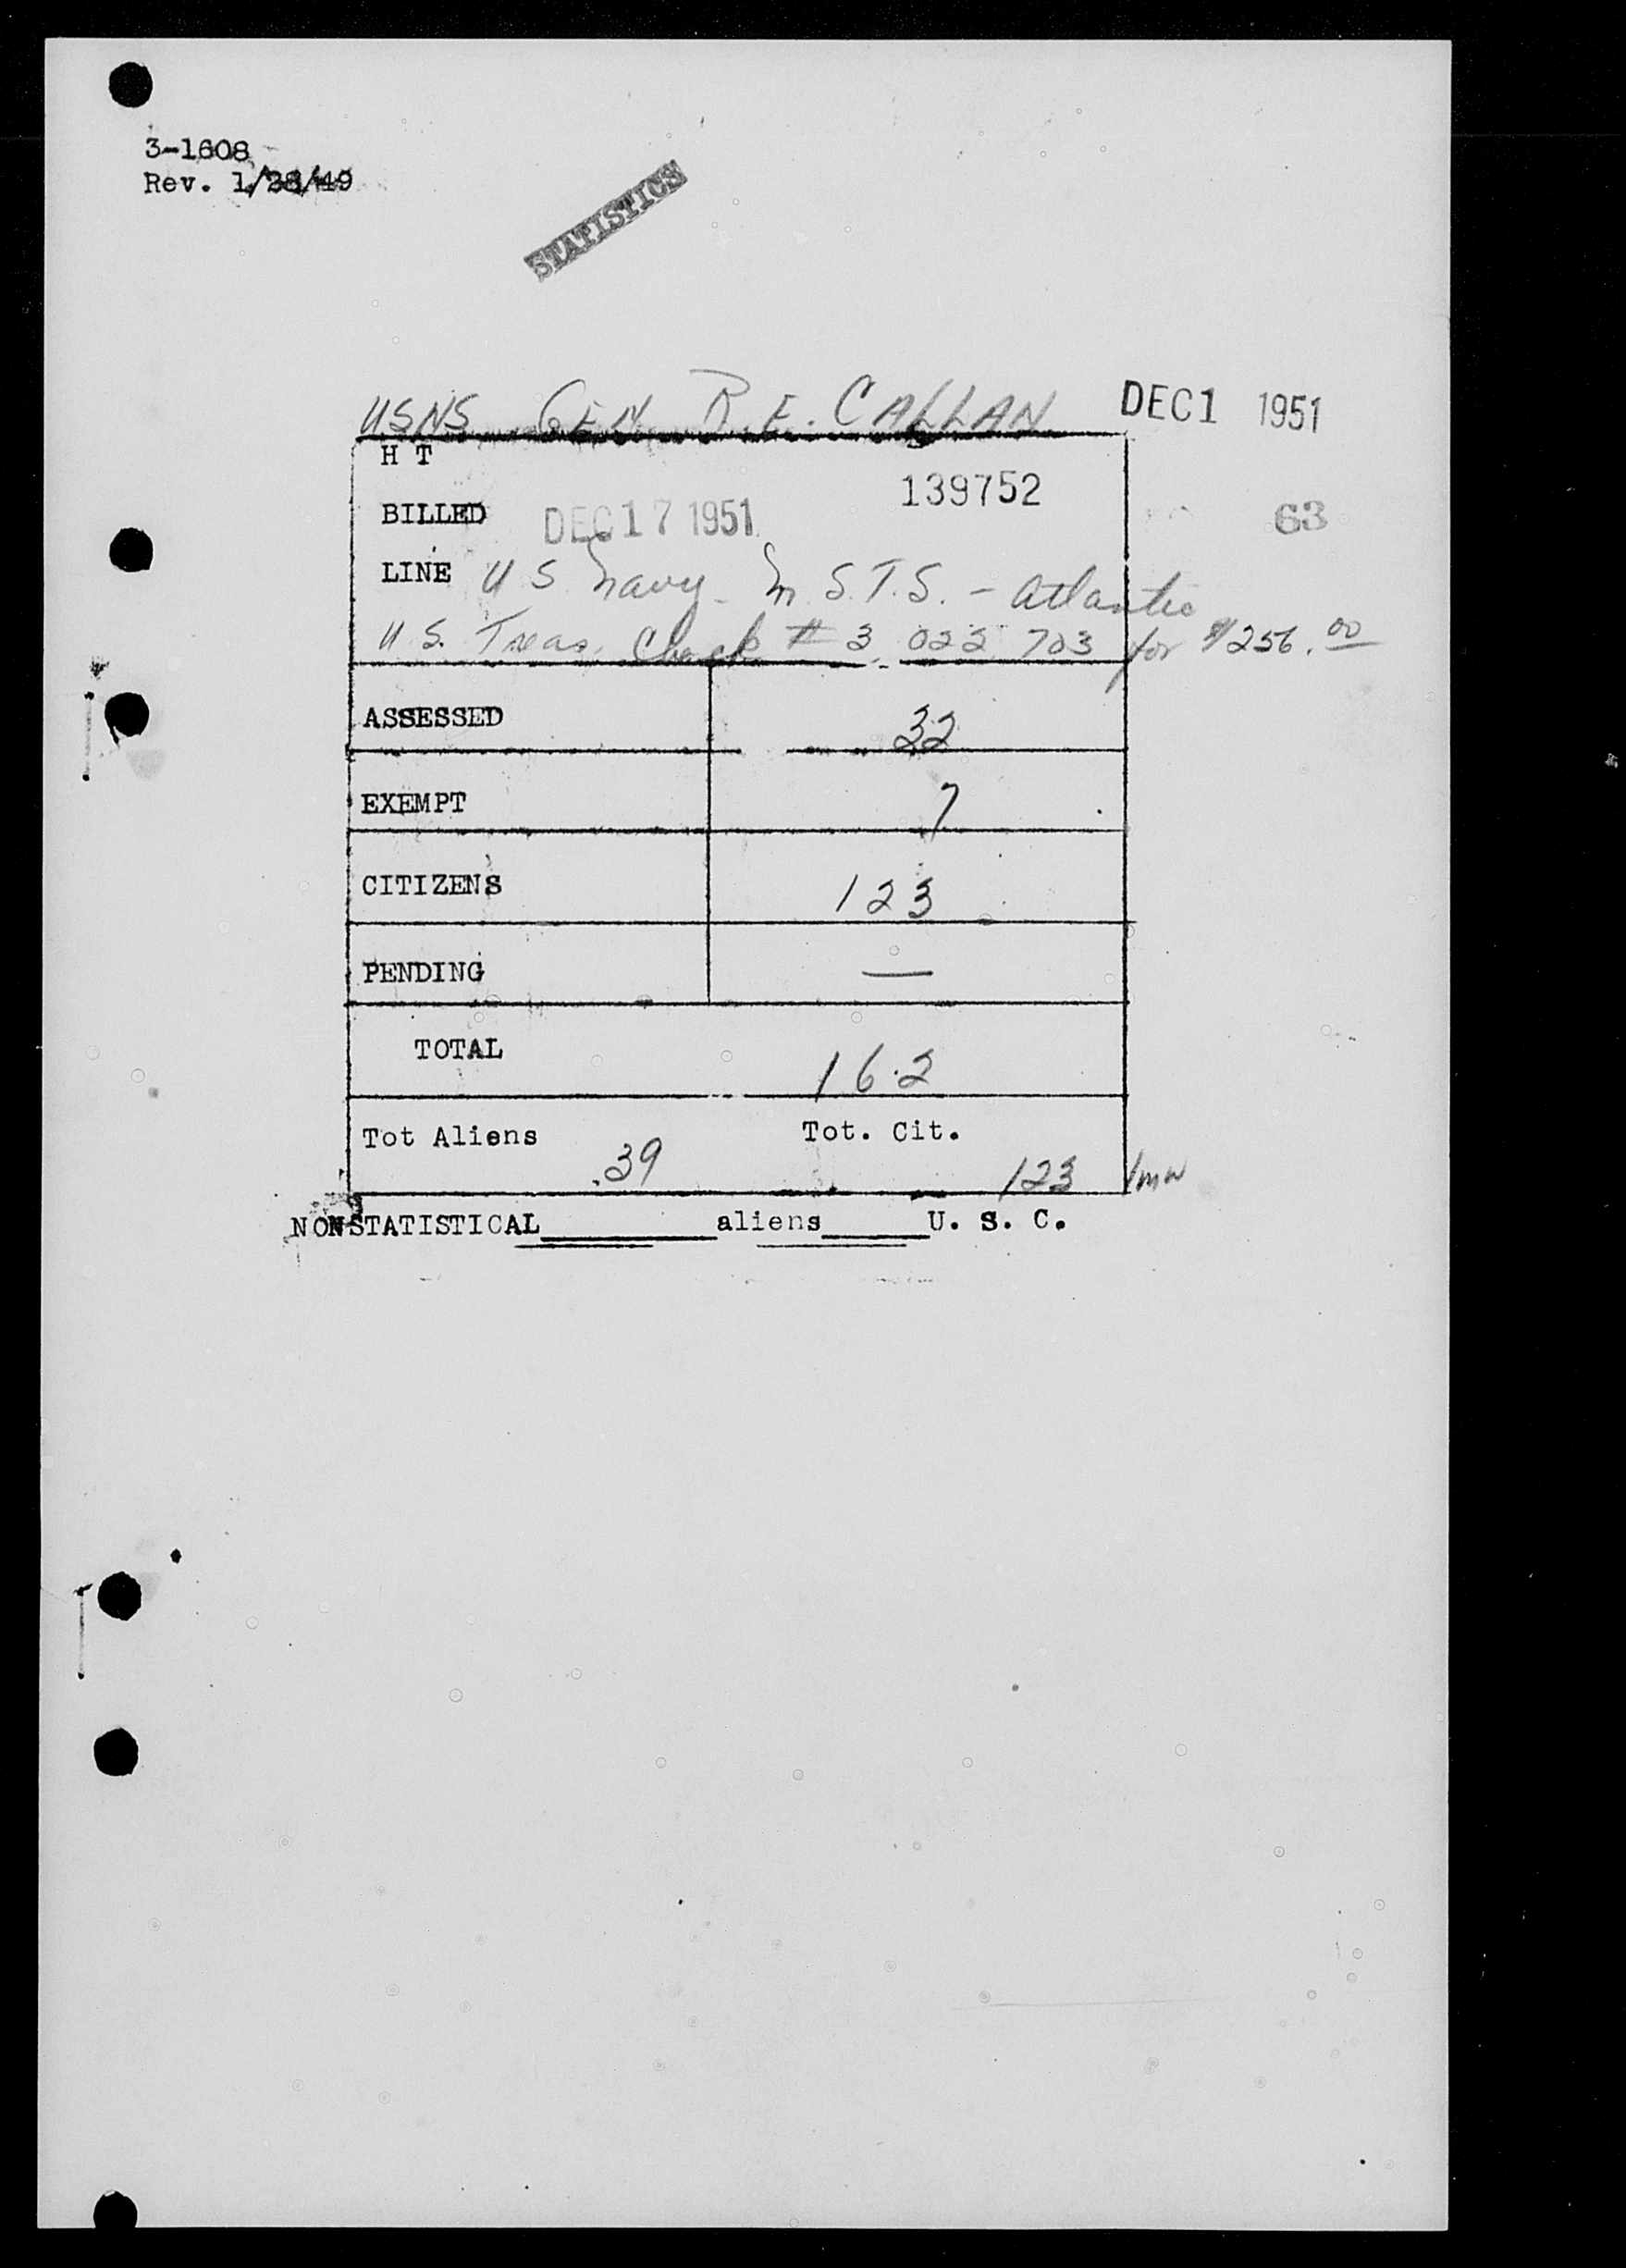 3-1608
Rev. 1/28/49
STATISTICS
USNS GEN R. E. CALLAN DEC 1 1951
H T
139752
BILLED DEC 17 1951 63
LINE U S Navy - M. S.T.S. - Atlantic
U.S. Treas. Check # 3,022,703 for $256.00
ASSESSED 32
EXEMPT 7
CITIZENS 123
PENDING —
TOTAL 162
Tot Aliens 39 Tot. Cit. 123 /mw
NONSTATISTICAL________aliens_____U. S. C.